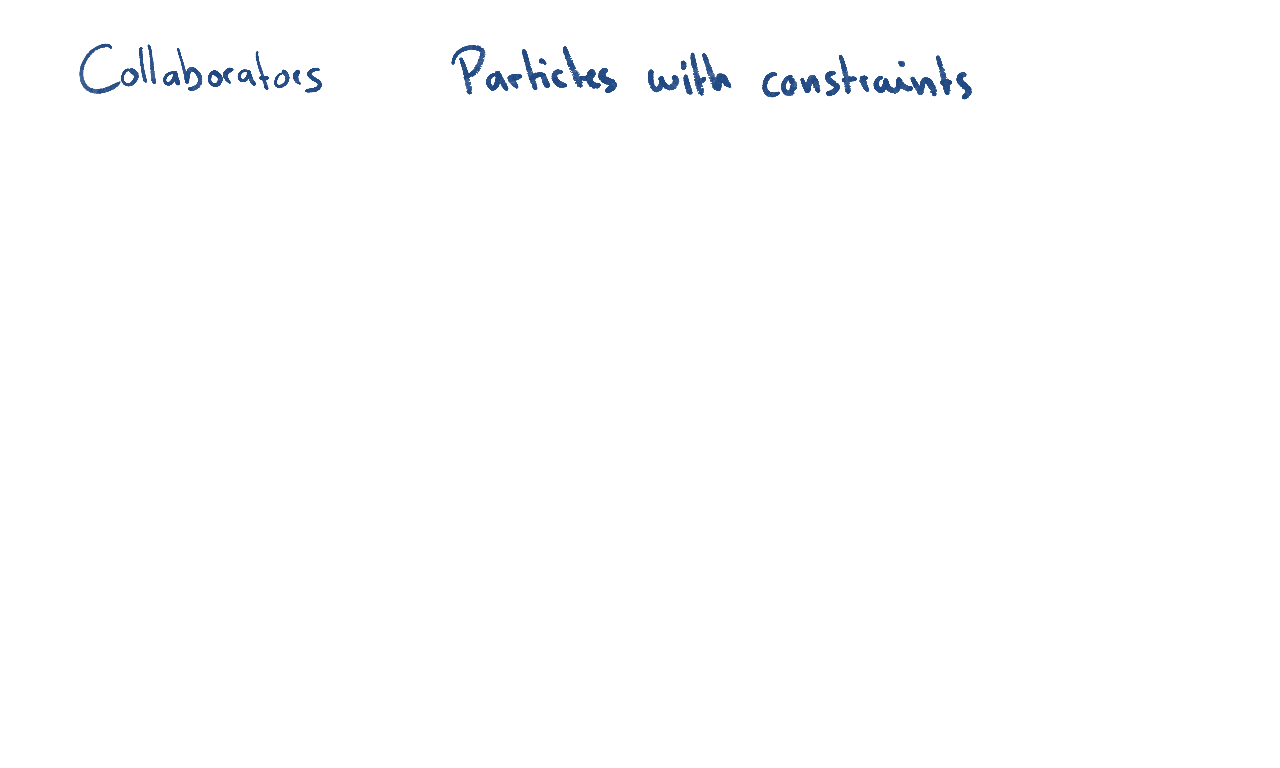 Collaborators Particles with constraints